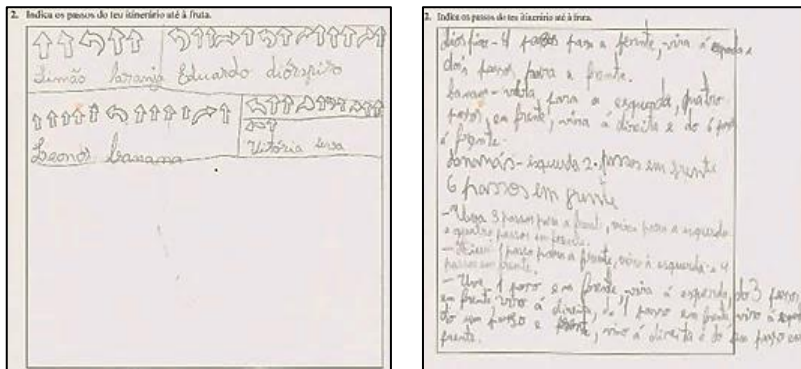 2. Indica os passos do teu itinerário até à fruta.
Simão laranja Eduardo dióspiro
Leonor banana
Vitória uva
2. Indica os passos do teu itinerário até à fruta.
dióspiro - 4 passos para a frente, vira á
dois passos para a frente.
banana - volta para a esquerda, quatro
passos, em frente, vira á direita e do 6
á frente.
esquerda 2. passos em frente
6 passos em frente
- Uva 3 passos para a frente, viro para a esquerda
e quatro passos em frente.
1 passo para a frente, viro á esquerda e 4
passos em frente.
- Uva, 1 paso em frente, vira á esperda, do 3
em frente, viro á direita, do 1 passo em frente viro á
do um passo e frente, viro á direita e do um passo em
frente.